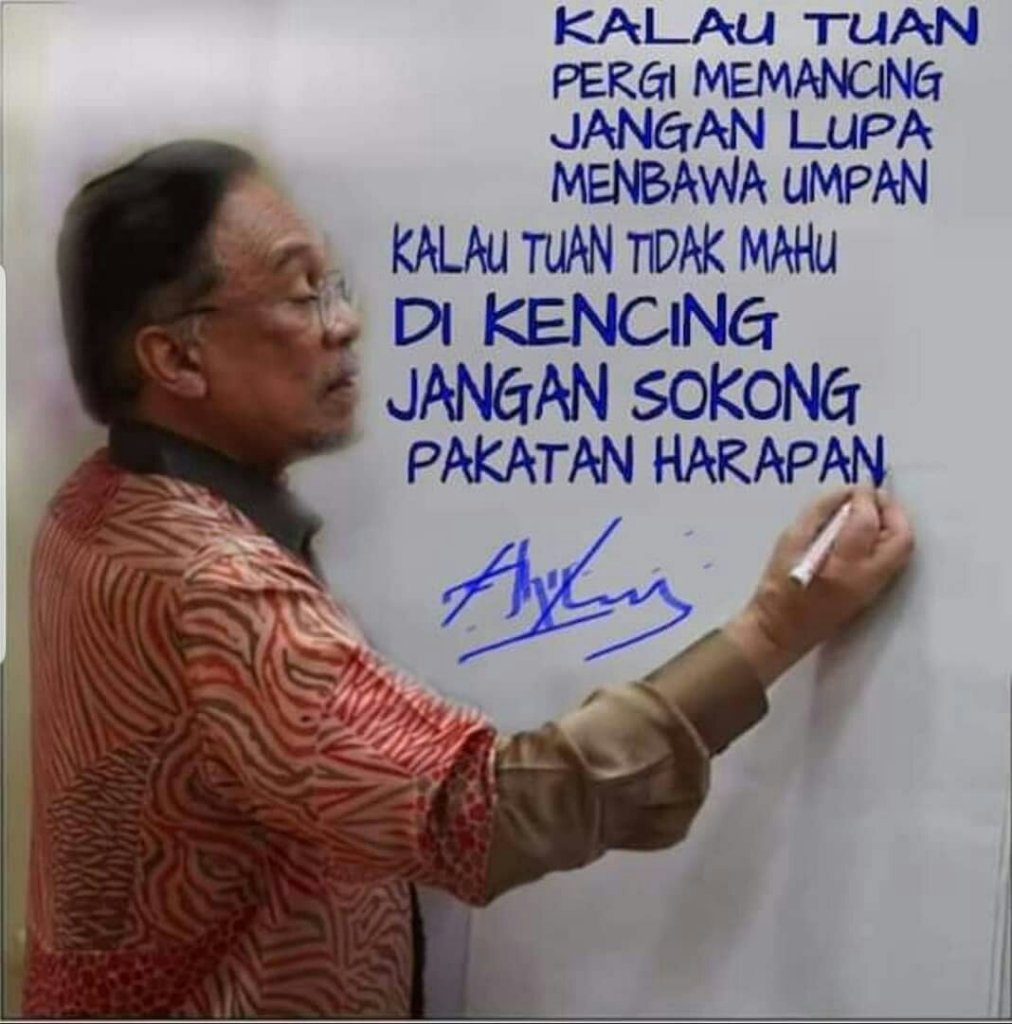 KALAU TUAN
PERGI MEMANCING
JANGAN LUPA
MENBAWA UMPAN
KALAU TUAN TIDAK MAHU
DI KENCING
JANGAN SOKONG
PAKATAN HARAPAN